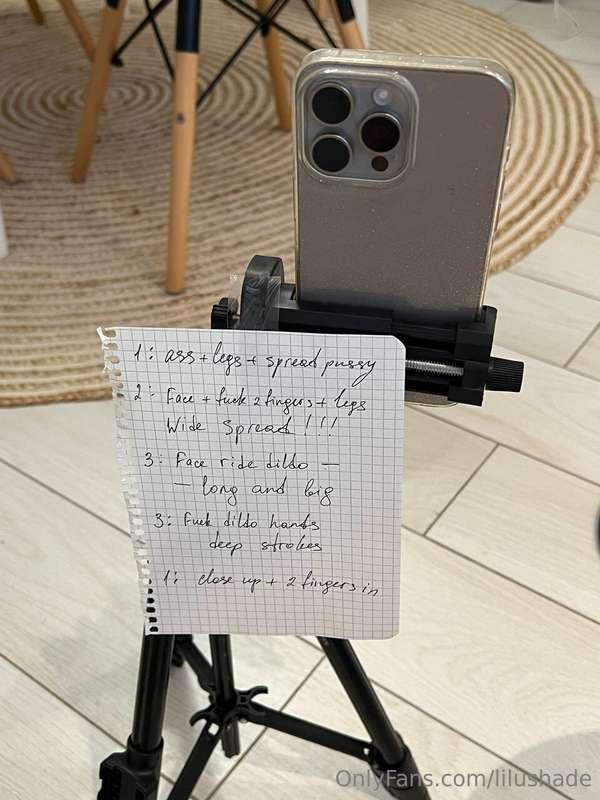 1: ass + legs + spread pussy
2: Face + fuck 2 fingers + legs
Wide Spread!!!
3: Face ride dildo –
– long and big
3: Fuck dildo hands
deep strokes
1: close up + 2 fingers in
OnlyFans.com/lilushade